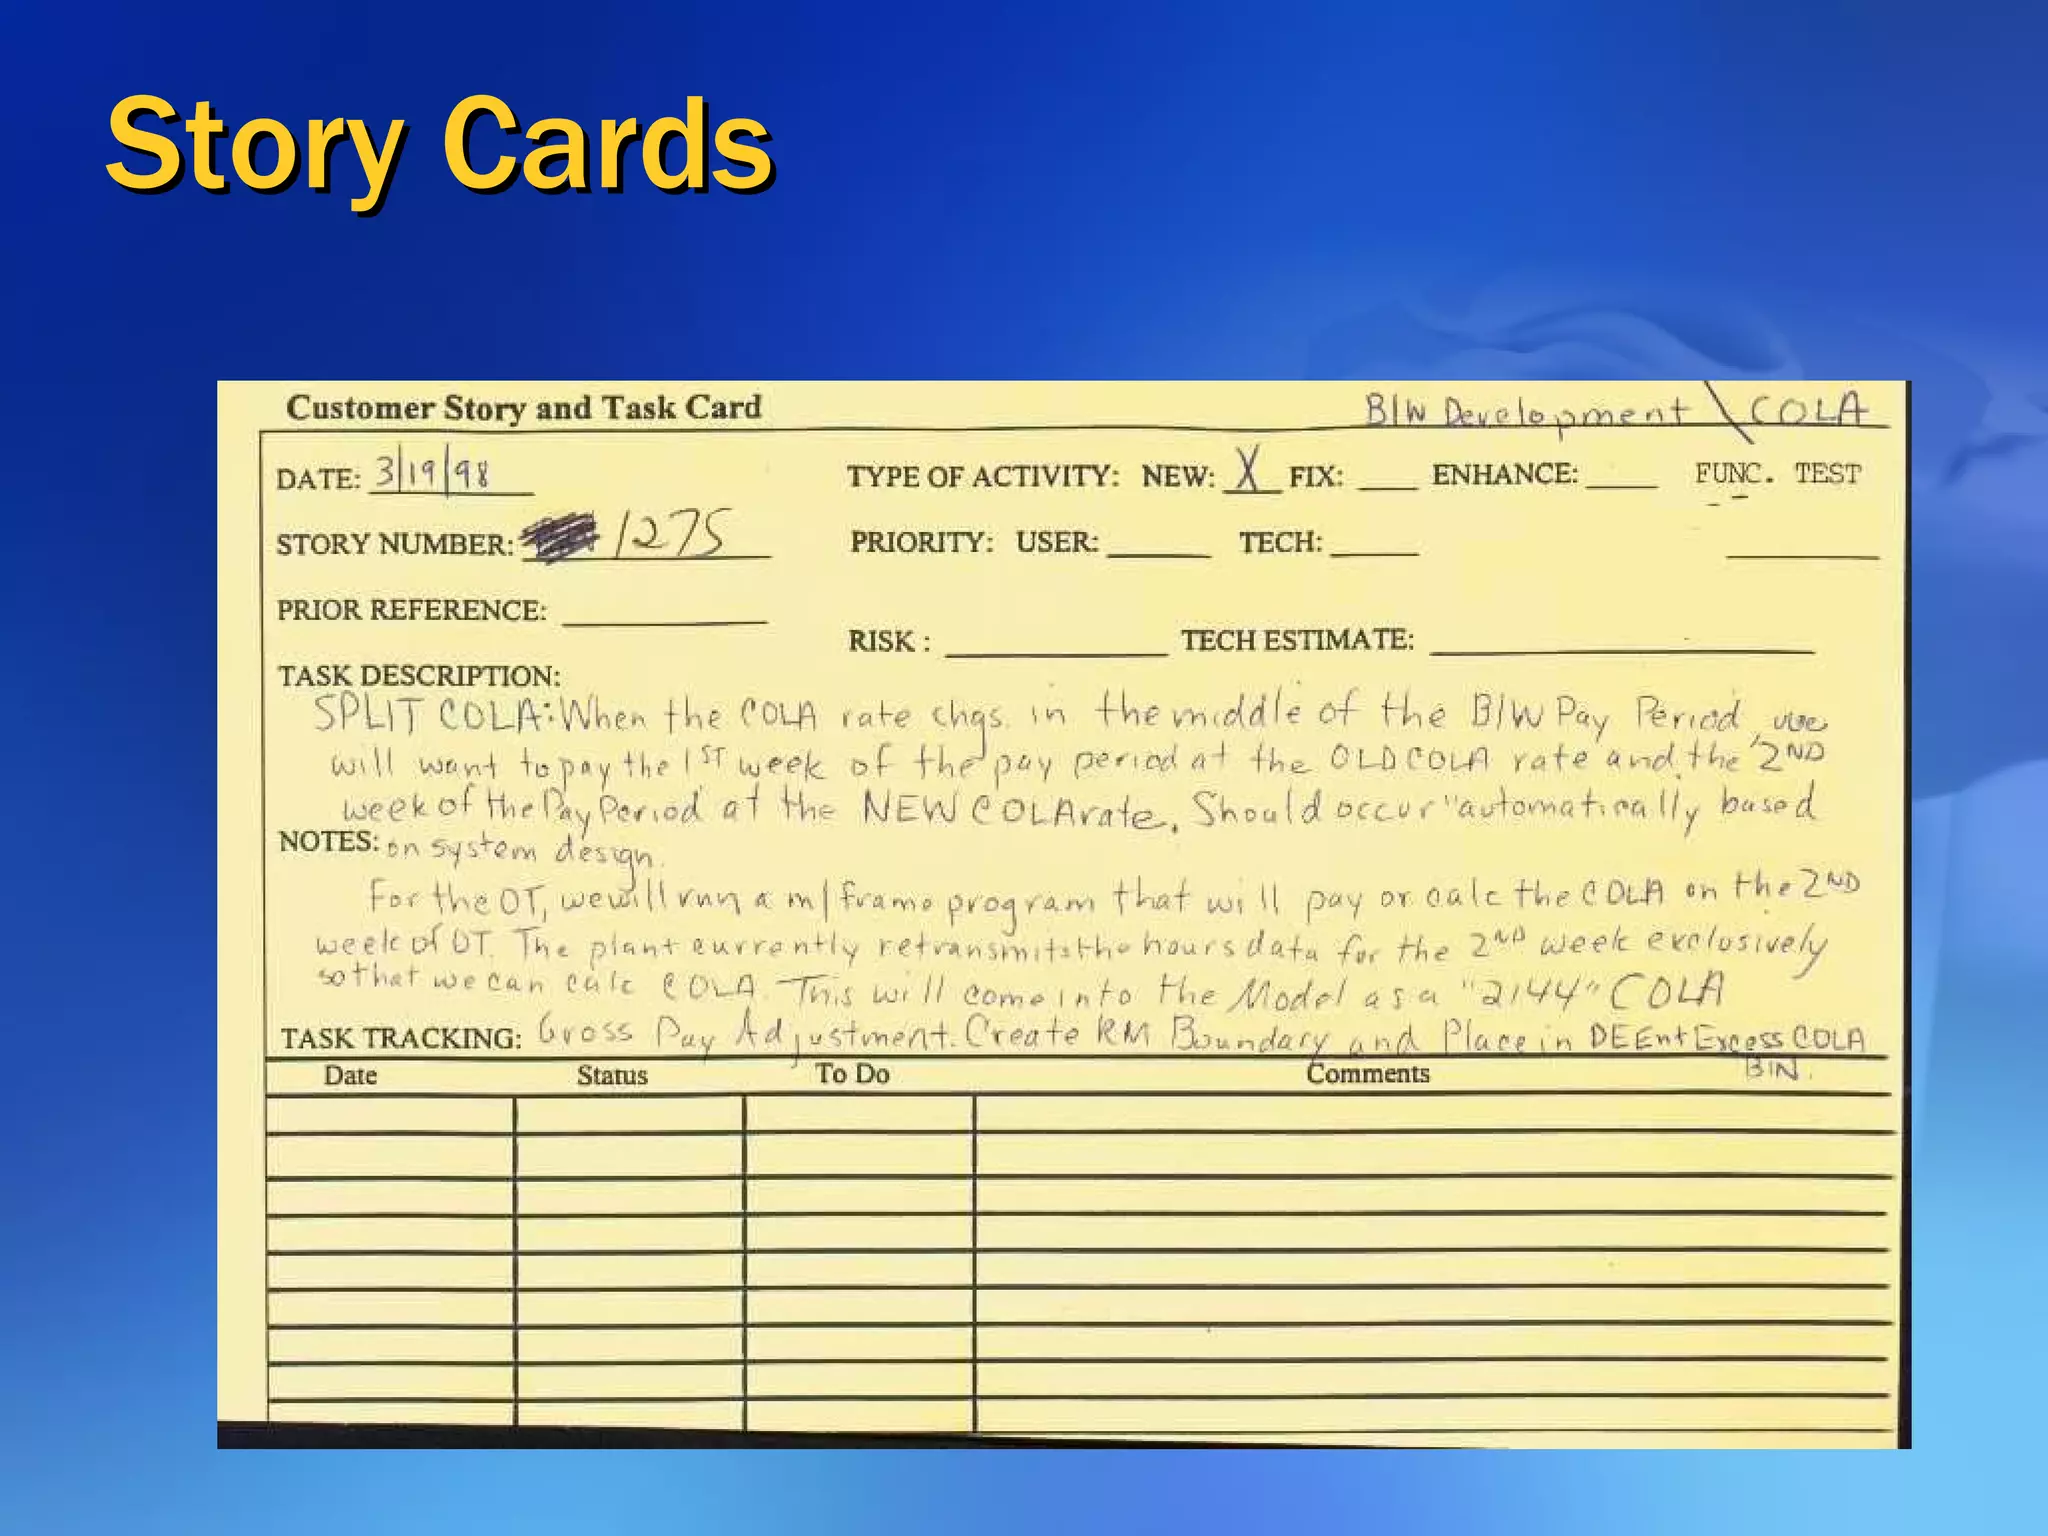 Story Cards
Customer Story and Task Card B/W Development \ COLA
DATE: 3/19/98 TYPE OF ACTIVITY: NEW: X FIX: ENHANCE: FUNC. TEST
STORY NUMBER: 1275 PRIORITY: USER: TECH:
PRIOR REFERENCE:
RISK : TECH ESTIMATE:
TASK DESCRIPTION:
SPLIT COLA: When the COLA rate chgs. in the middle of the B/W Pay Period, we
will want to pay the 1ST week of the pay period at the OLD COLA rate and the 2ND
week of the Pay Period at the NEW COLA rate. Should occur "automatically based
NOTES: on system design.
For the OT, we will run a m/frame program that will pay or calc the COLA on the 2ND
week of OT. The plant currently retransmits the hours data for the 2ND week exclusively
so that we can calc COLA. This will come into the Model as a "2144" COLA
TASK TRACKING: Gross Pay Adjustment. Create RM Boundary and Place in DEEnt Excess COLA
BIN.
Date Status To Do Comments